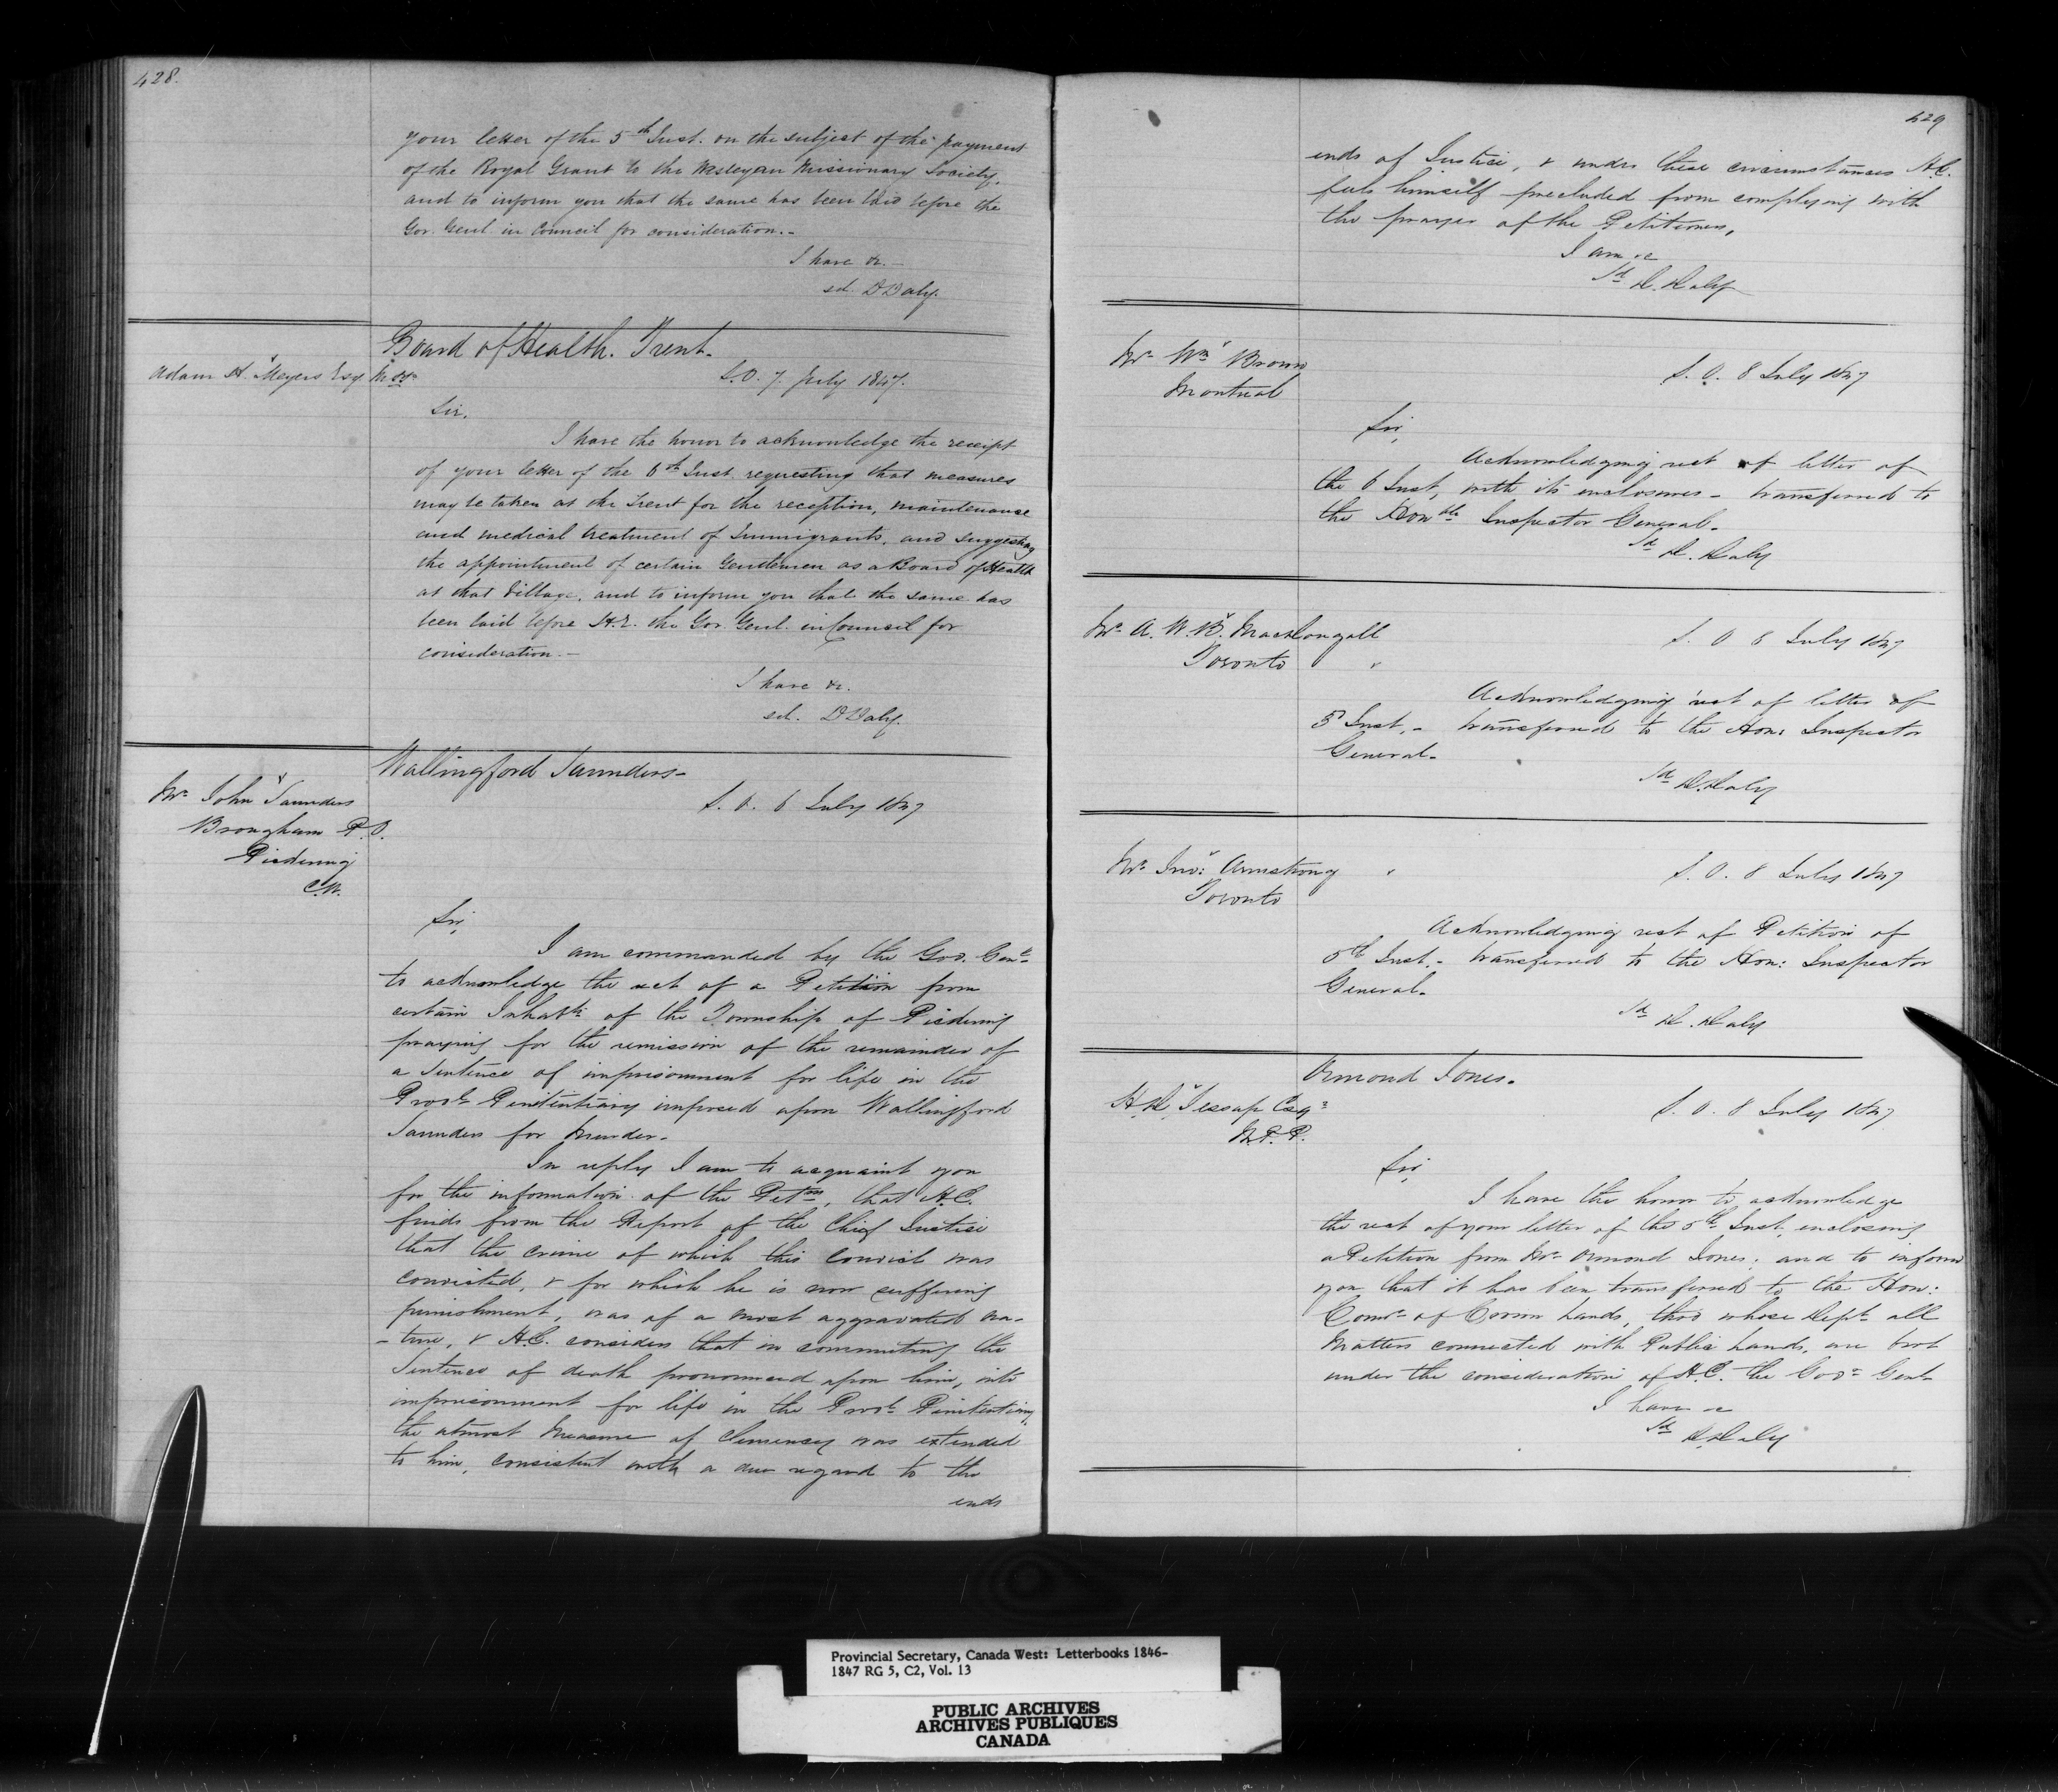 428.
your letter of the 5th Inst. on the subject of the payment
of the Royal Grant to the Wesleyan Missionary Society,
and to inform you that the same has been laid before the
Gov. Genl. in Council for consideration.-
I have &c.-
sd. DDaly.
Board of Health. Trent.
Adam H. Meyers Esq
S.O. 7. July 1847.
Sir,
I have the honor to acknowledge the receipt
of your letter of the 6th Inst. requesting that measures
may be taken at the Trent for the reception, maintenance
and medical treatment of Immigrants, and suggesting
the appointment of certain Gentlemen as a Board of Health
at that Village, and to inform you that the same has
been laid before H.E. the Gov. Genl. in Council for
consideration.-
I have &c.
sd. DDaly.
Wallingford Saunders-
Mr John Saunders
Brougham P.O.
Pickering
C.W.
S. O. 6 July 1847
Sir,
I am commanded by the Gov. Genl
to acknowledge the rect of a Petition from
certain Inhabts of the Township of Pickering
praying for the remission of the remainder of
a Sentence of imprisonment for life in the
Provl Penitentiary imposed upon Wallingford
Saunders for Murder-
In reply I am to acquaint you
for the information of the Petrs, that H.E.
finds from the Report of the Chief Justice
that the crime of which this Convict was
convicted, & for which he is now suffering
punishment, was of a most aggravated na-
-ture, & H.E. considers that in commuting the
Sentence of death pronounced upon him, into
imprisonment for life in the Provl Penitentiary,
the utmost Measure of Clemency was extended
to him, consistent with a due regard to the
ends
429
ends of Justice, & under these circumstances H.E.
feels himself precluded from complying with
the prayer of the Petitioners,
I am &c
Sd D. Daly
Mr Wm Brown
Montreal
S. O. 8 July 1847
Sir,
Acknowledging rect of letter of
the 6 Inst, with its enclosures - transferred to
the Honble Inspector General-
Sd D. Daly
Mr A. W. B. MacDougall
Toronto "
S. O 8 July 1847
Acknowledging rect of letter of
5 Inst, - transferred to the Hon: Inspector
General-
Sd D. Daly
Mr Jno: Armstrong "
Toronto
S. O. 8 July 1847
Acknowledging rect of Petition of
5th Inst. - transferred to the Hon: Inspector
General-
Sd D. Daly
Ormond Jones-
H. D. Jessup Esqr
M.P.P.
S. O. 8 July 1847
Sir,
I have the honor to acknowledge
the rect of your letter of the 5th Inst, enclosing
a Petition from Mr Ormond Jones; and to inform
you that it has been transferred to the Hon:
Comr of Crown Lands, thro whose Dept all
Matters connected with Public Lands, are brot
under the consideration of H.E. the Govr Genl-
I have &c
Sd D. Daly
Provincial Secretary, Canada West: Letterbooks 1846-
1847 RG 5, C2, Vol. 13
PUBLIC ARCHIVES
ARCHIVES PUBLIQUES
CANADA